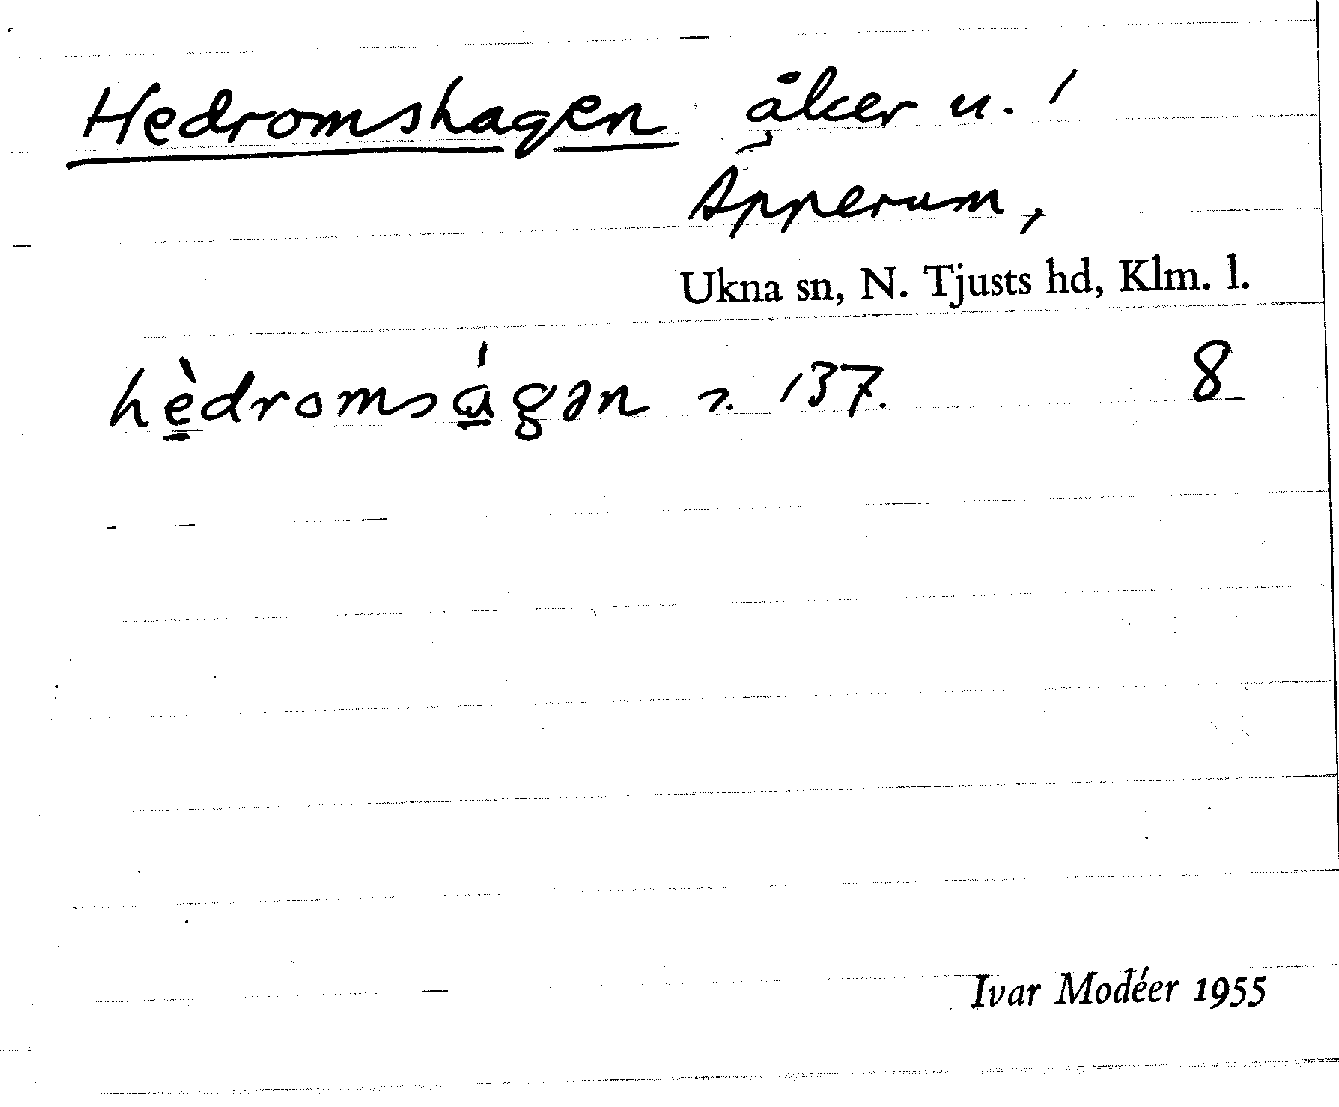 Hedromshagen åker u. /
Äpperum,
Ukna sn, N. Tjusts hd, Klm. l.
hèdromságən 2. 137. 8
Ivar Modéer 1955